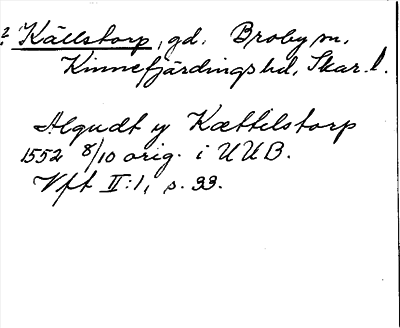 ? Källstorp, gd. Broby sn.
Kinnefjärdings hd, Skar. l.
Algudt y Kættilstorp
1552 8/10 orig. i UUB.
Vft II:1, s. 33.